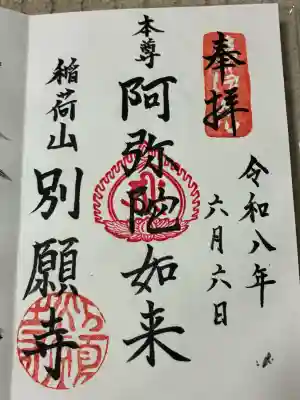 奉拝
令和八年
六月六日
本尊
阿弥陀如来
稲荷山
別願寺